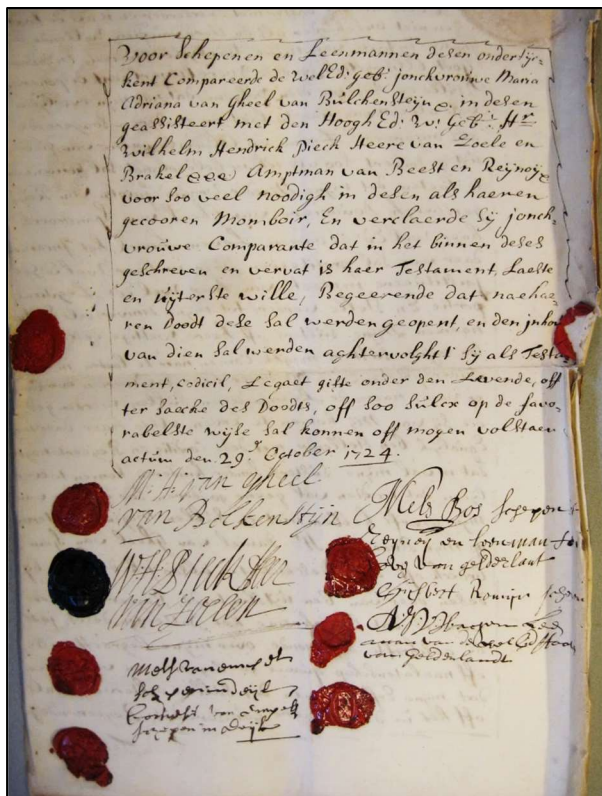 Voor Schepenen en Leenmannen desen onderty:
kent Compareerde de welEd: geb: jonckvrouwe Maria
Adriana van Gheel van Bulckensteyn &. in desen
geassisteert met den Hoogh Ed: W: Geb: Hr
Wilhelm Hendrick Pieck Heere van Zoele en
Brakel &&& Amptman van Beest en Reynoy &
voor soo veel noodigh in desen als haeren
gecooren Momboir, En verclaerde sy jonck-
vrouwe Comparante dat in het binnen deses
geschreven en vervat is haer Testament, Laeste
en uyterste wille, Begeerende dat nae hae-
ren Doodt dese sal werden geopent, en den jnhou
van dien sal werden achtervolght 't sy als Testa-
ment, codicil, Legaet gifte onder den Levende, off
ter saecke des Doodts, off soo sulcx op de favo-
rabelste wijse sal konnen off mogen volstaen
actum den 29 October 1724.
M: A: van Gheel
van Bolkenstijn
W H Pieck Heer
van Zoelen
Mels van
schepen in deijl
Cornelis van
schepen in deijl
Mels Bos schepen
en leenman
van gelderlant
Romijn
man van de
van Gelderlandt